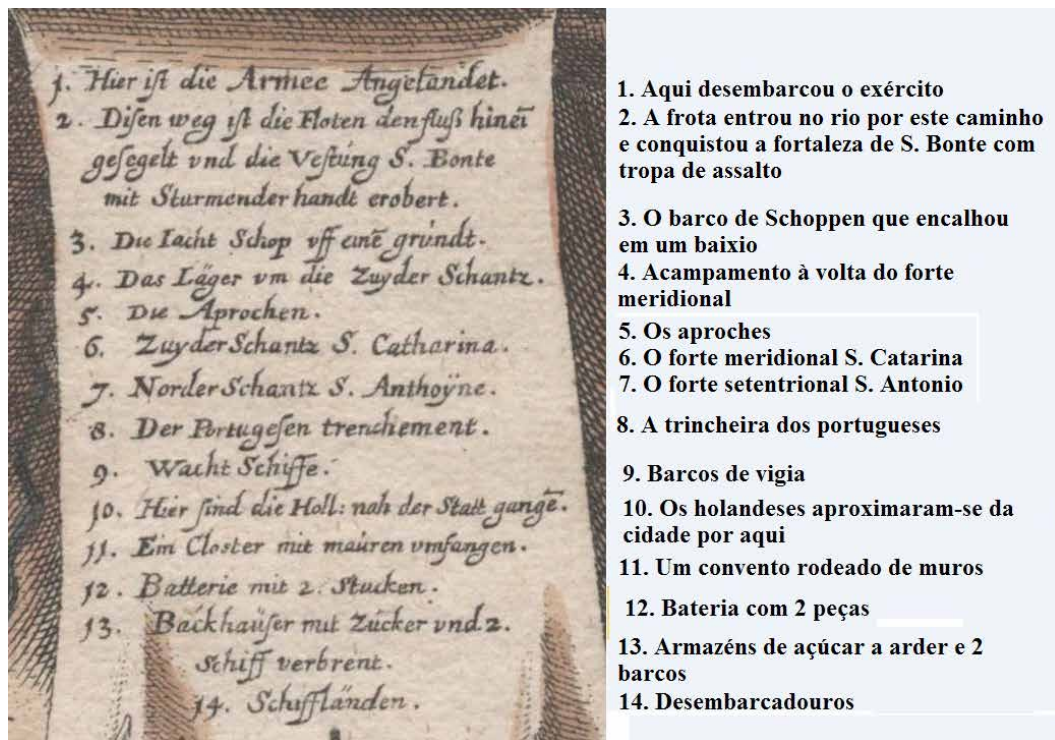 1. Hier ist die Armee Angelandet.
2. Disen weg ist die Floten den fluß hinei̅
gesegelt vnd die Vestúng S. Bonte
mit Sturmender handt erobert.
3. Die Iacht Schop vff eine̅ grúndt.
4. Das Läger vm die Zuyder Schantz.
5. Die Aprochen.
6. Zuyder Schantz S. Catharina.
7. Norder Schantz S. Anthoÿne.
8. Der Portugesen trenchement.
9. Wacht Schiffe.
10. Hier sind die Holl: nah der Statt gange̅.
11. Ein Closter mit maúren vmfangen.
12. Batterie mit 2. Stucken.
13. Backhaüser mit Zúcker vnd 2.
Schiff verbrent.
14. Schiffländen.
1. Aqui desembarcou o exército
2. A frota entrou no rio por este caminho
e conquistou a fortaleza de S. Bonte com
tropa de assalto
3. O barco de Schoppen que encalhou
em um baixio
4. Acampamento à volta do forte
meridional
5. Os aproches
6. O forte meridional S. Catarina
7. O forte setentrional S. Antonio
8. A trincheira dos portugueses
9. Barcos de vigia
10. Os holandeses aproximaram-se da
cidade por aqui
11. Um convento rodeado de muros
12. Bateria com 2 peças
13. Armazéns de açúcar a arder e 2
barcos
14. Desembarcadouros